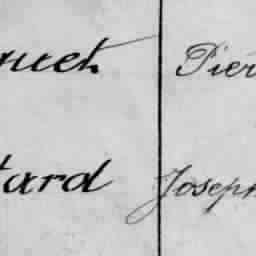 nuet Pier
tard Joseph